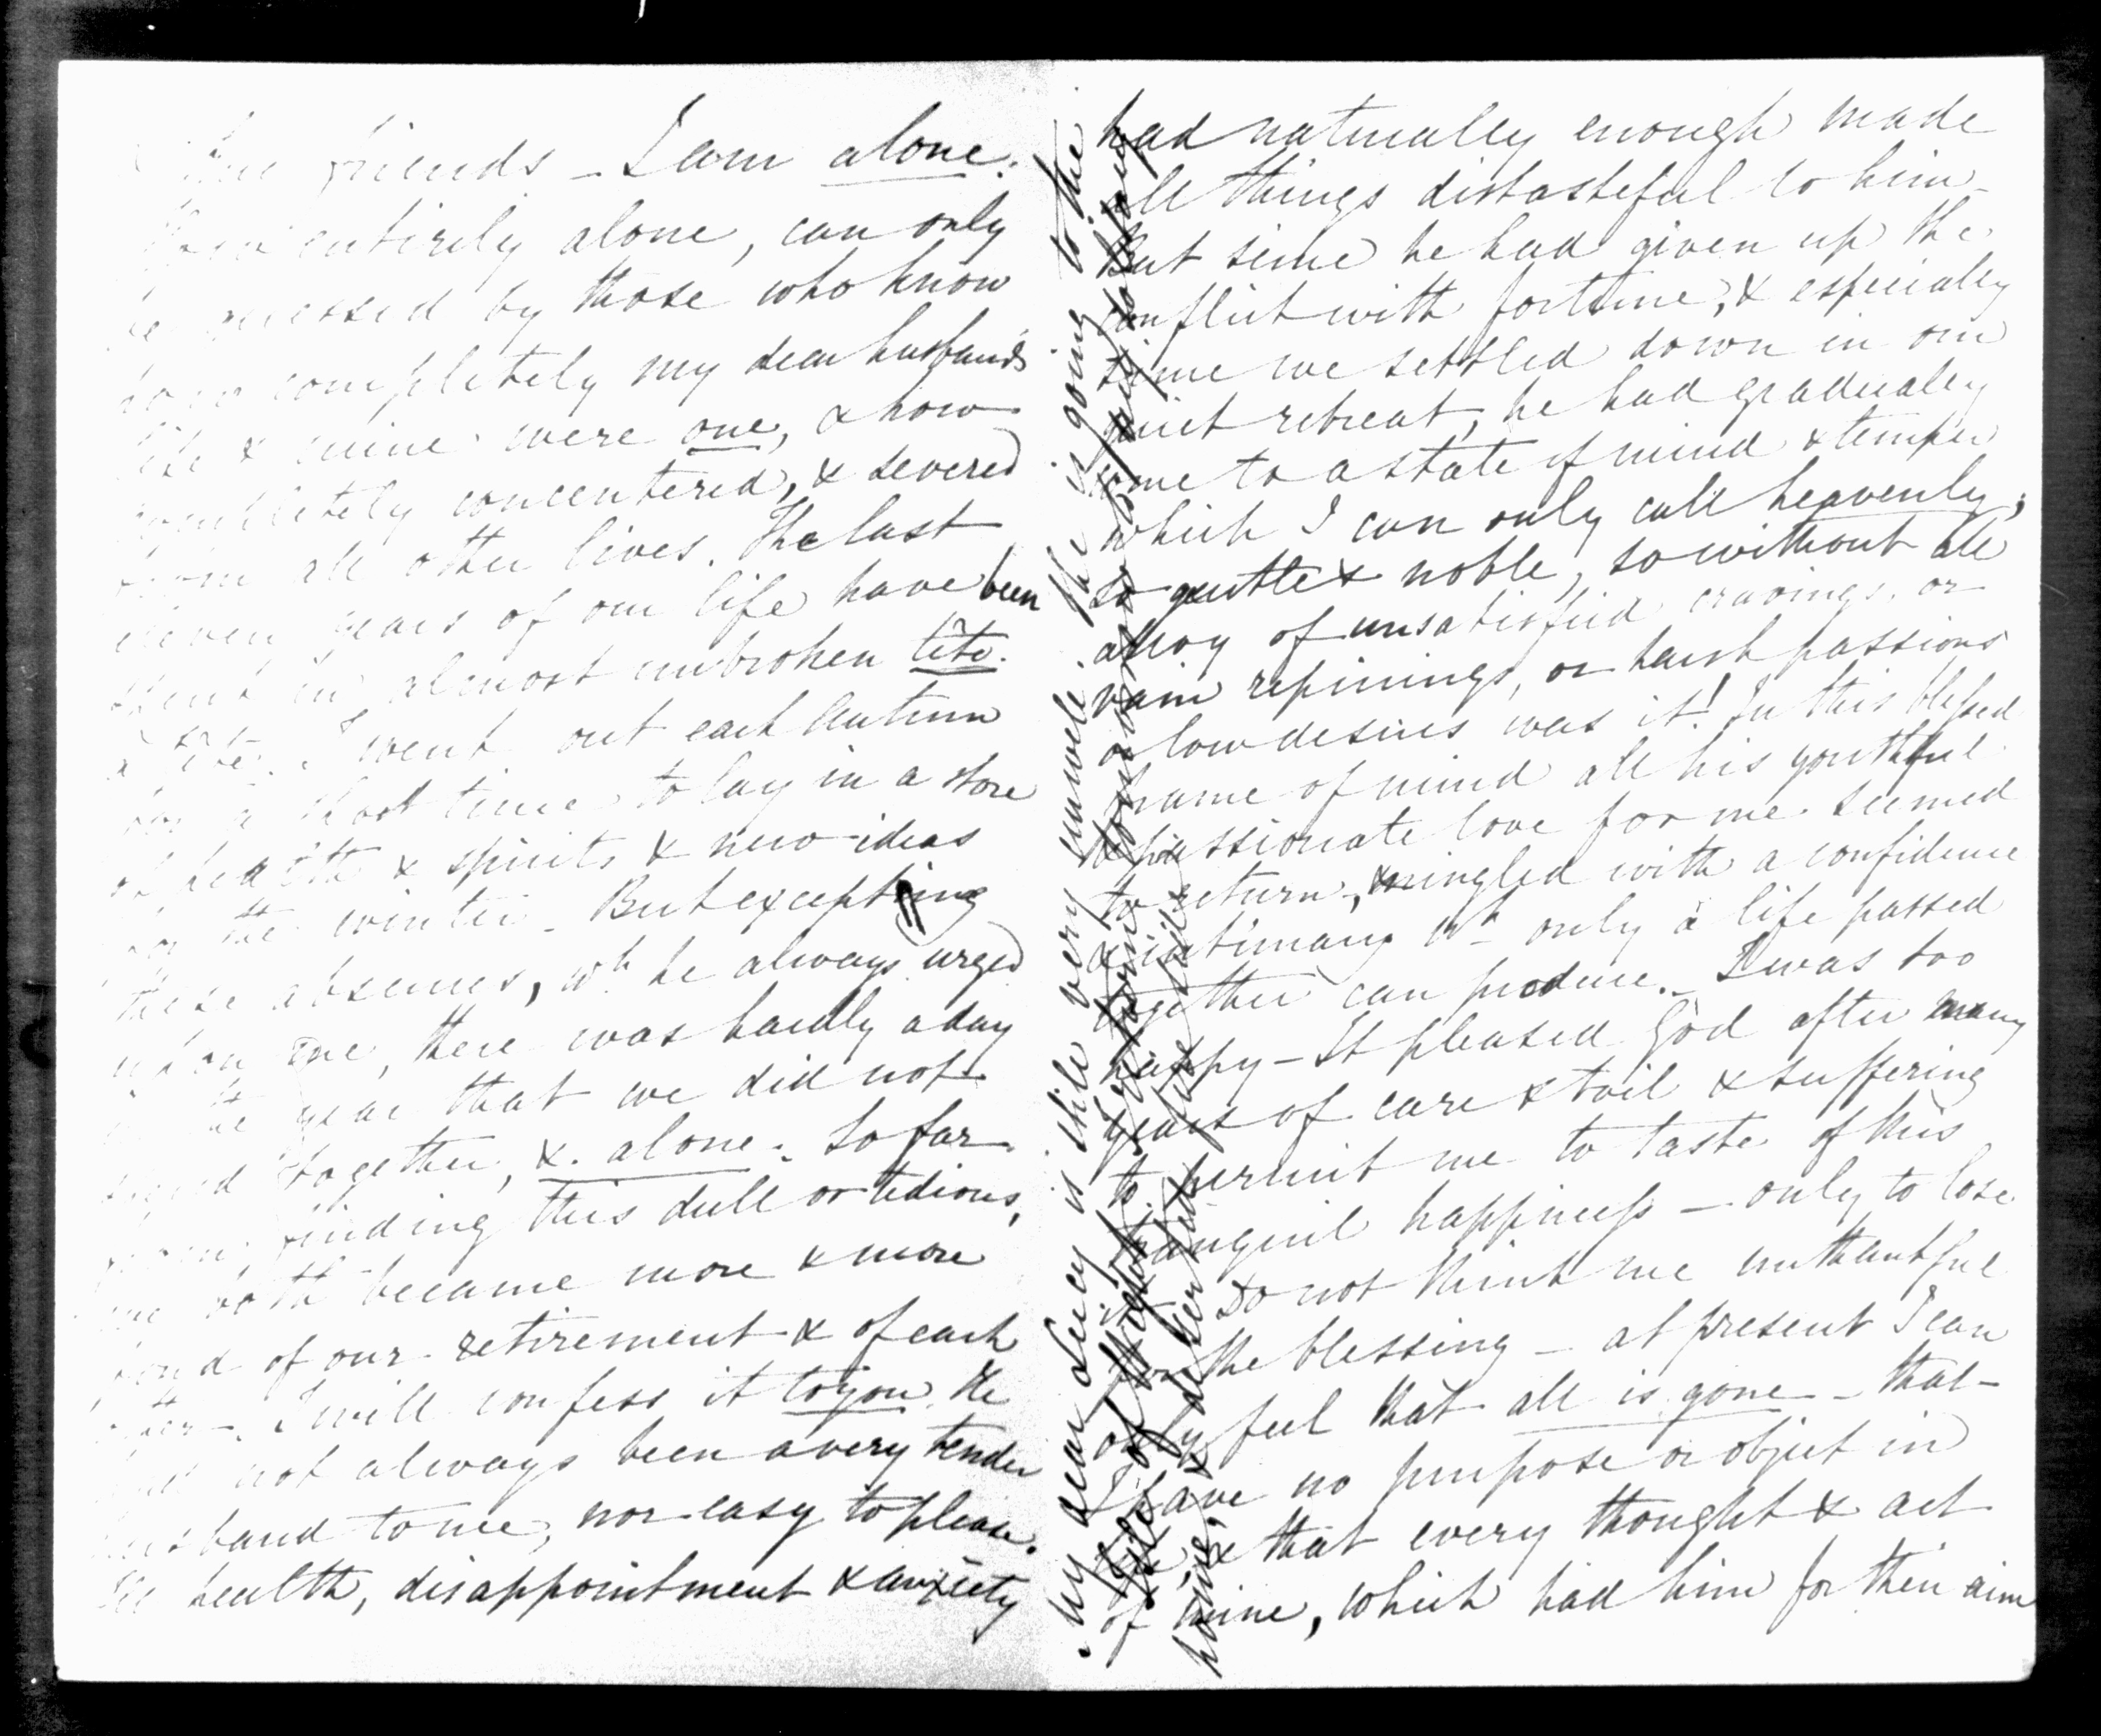 friends – I am alone.
entirely alone, can only
be guessed by those who know
how completely my dear husband's
life & mine were one, & how
completely concentered, & severed
from all other lives. The last
eleven years of our life have been
spent in almost unbroken tête
à tête. I went out each Autumn
for a short time to lay in a store
of health & spirits & new ideas
for the winter – But excepting
these absences, wh he always urged
upon me, there was hardly a day
in the year that we did not
spend together, & alone. So far
from finding this dull or tedious,
we both became more & more
fond of our retirement & of each
other – I will confess it to you. He
had not always been a very tender
husband to me, nor easy to please.
Ill health, disappointment & anxiety
had naturally enough made
all things distasteful to him –
But since he had given up the
conflict with fortune, & especially
since we settled down in our
quiet retreat, he had gradually
come to a state of mind & temper
which I can only call heavenly;
so gentle & noble, so without all
alloy of unsatisfied cravings, or
vain repinings, or harsh passions
or low desires was it! In this blessed
frame of mind all his youthful
& passionate love for me seemed
to return, mingled with a confidence
& intimacy wh only a life passed
together can produce. – I was too
happy – It pleased God after many
years of care & toil & suffering
to permit me to taste of this
tranquil happiness – only to lose
it. Do not think me unthankful
for the blessing – at present I can
only feel that all is gone – that
I have no purpose or object in
life, & that every thought & act
of mine, which had him for their aim
My dear Lucy is still very unwell. She is going to the
Isle of Wight
home, & desert